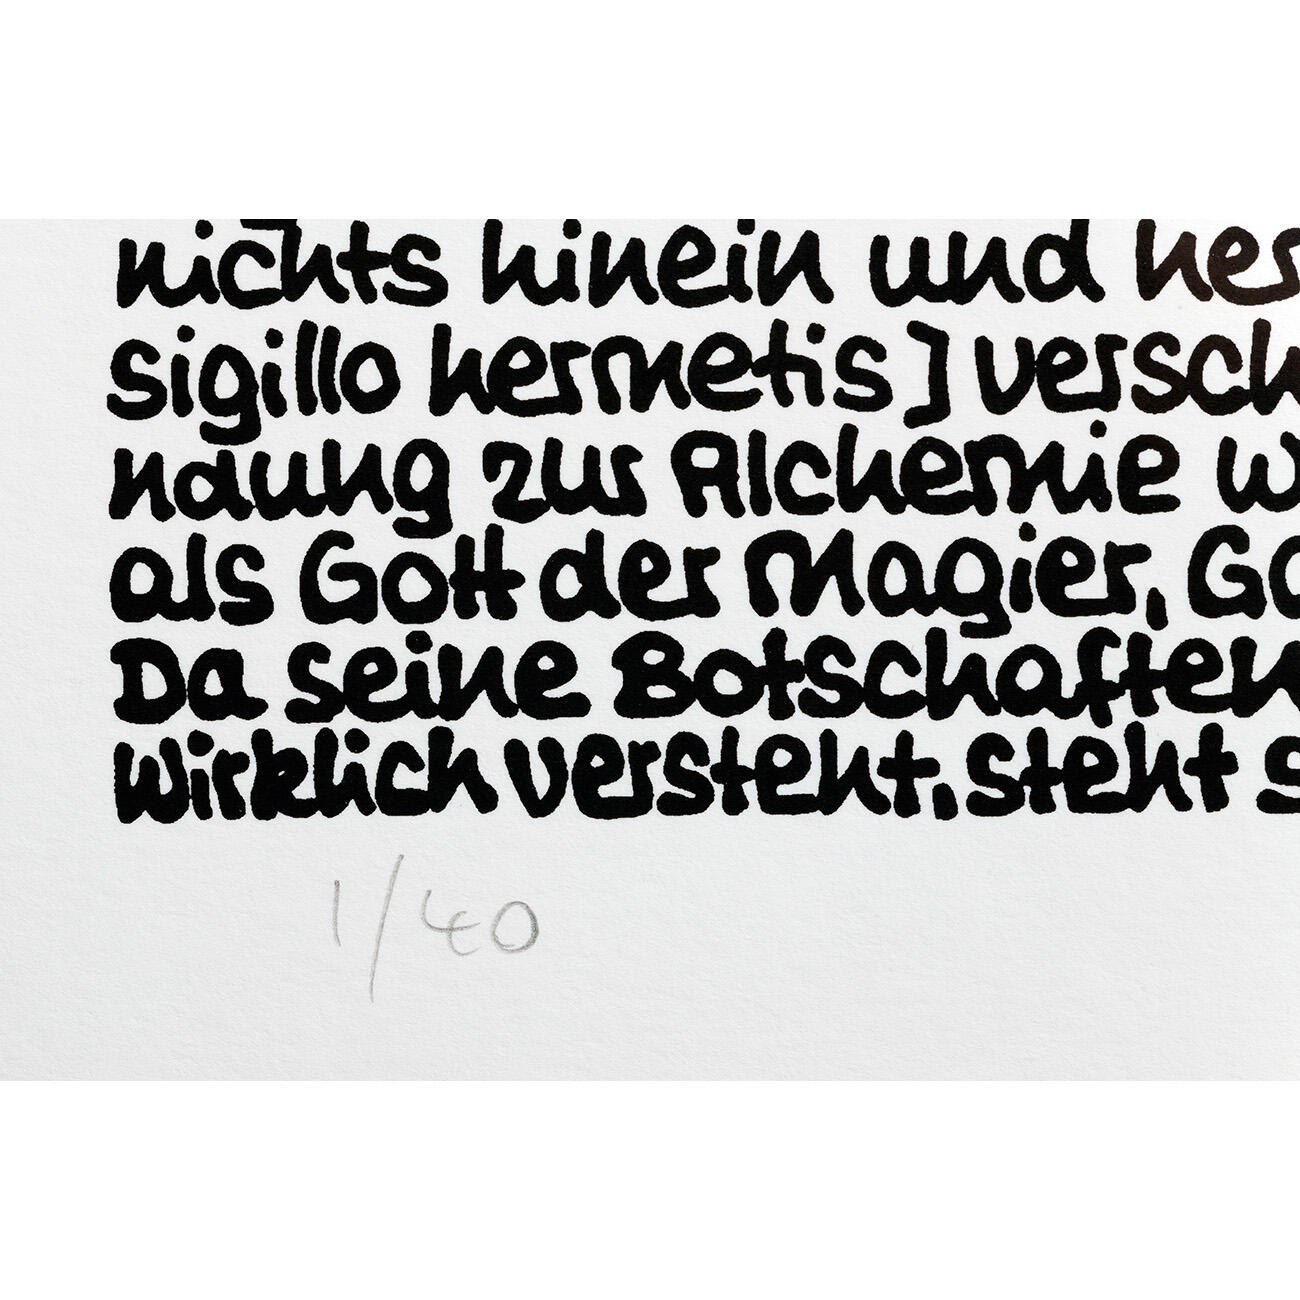 nichts hinein und her
sigillo hermetis] versch
ndung zur Alchemie w
als Gott der Magier, Go
Da seine Botschaften
wirklich versteht, steht s
1/40